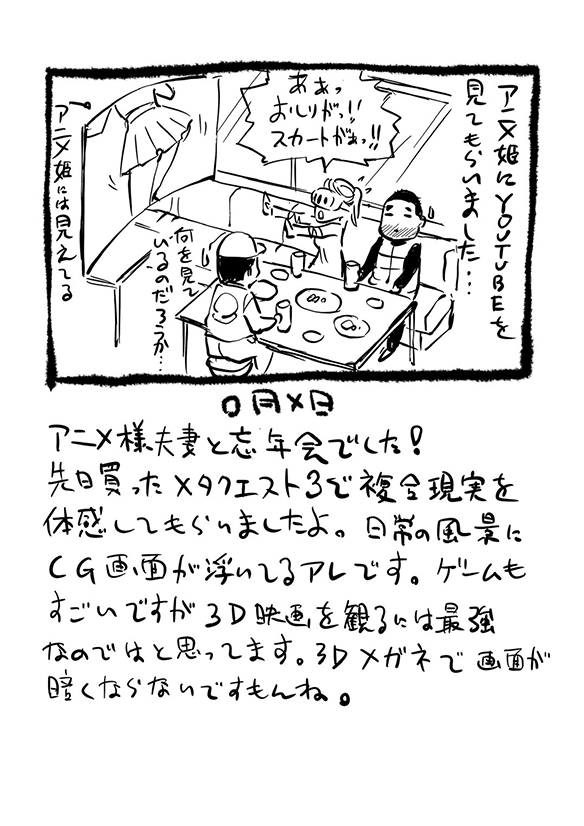 アニメ姫にYOUTUBEを
見てもらいました…
ああっ
おしりがっ!!
スカートがぁっ!!
何を見て
いるのだろうか…
アニメ姫には見えてる
〇月×日
アニメ様夫妻と忘年会でした!
先日買ったメタクエスト3で複合現実を
体感してもらいましたよ。日常の風景に
CG画面が浮いてるアレです。ゲームも
すごいですが3D映画を観るには最強
なのではと思ってます。3Dメガネで画面が
暗くならないですもんね。